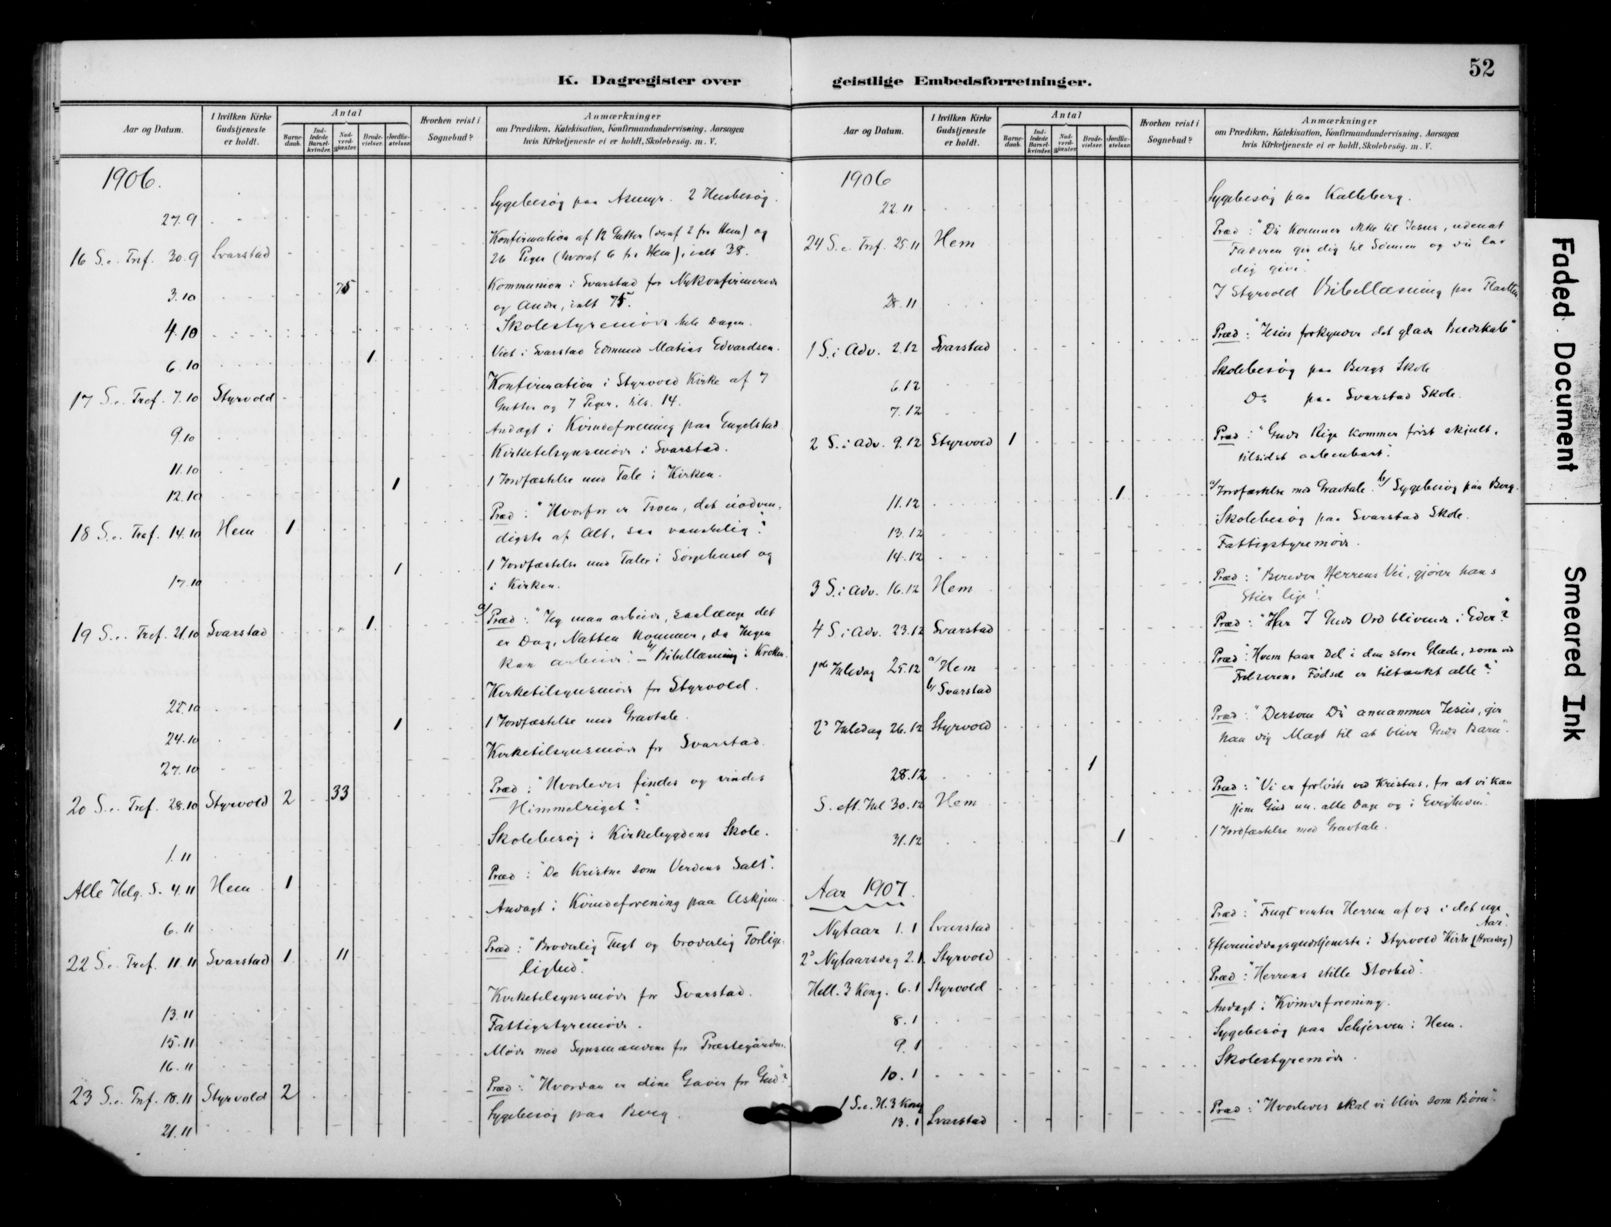 K. Dagregister over
Aar og Datum.
I hvilken Kirke Gudstjeneste er holdt.
Antal
Barnedaab.
Indledede Barselkvinder.
Nadverdgjæster.
Brudevielser.
Jordfæstelser.
Hvorhen reist i Sognebud?
Anmærkninger
om Prædiken, Katekisation, Konfirmandundervisning, Aarsagen
hvis Kirketjeneste ei er holdt, Skolebesøg. m. V.
1906.
27.9 Sygebesøg paa 2 Husbesøg.
16 S. e. Tref. 30.9 Svarstad Konfirmation af 12 Gutter (deraf 2 fra Hem) og
26 Piger (hvoraf 6 fra Hem), ialt 38.
3.10 75 Kommunion i Svarstad for Nykonfirmerede
og Andre, ialt 75.
4.10 Skolestyremøde hele Dagen.
6.10 1 Viet i Svarstad Edmund Matias Edvardsen.
17 S. e. Tref. 7.10 Styrvold Konfirmation i Styrvold Kirke af 7
Gutter og 7 Piger, tils. 14.
9.10 Andagt i Kvindeforening paa Engelstad.
11.10 Kirketilsynsmøde i Svarstad.
12.10 1 1 Jordfæstelse med Tale i Kirken.
18 S. e. Tref. 14.10 Hem 1 Præd: "Hvorfor er Troen, det nødven-
digste af Alt, saa vanskelig?"
17.10 1 1 Jordfæstelse med Taler i Sørgehuset og
i Kirken.
19 S. e. Tref. 21.10 Svarstad 1 a/ Præd: "Jeg maa arbeide, saalænge det
er Dag, Natten kommer, da Ingen
kan arbeide". – b/ Bibellæsning i Kroken
22.10 Kirketilsynsmøde for Styrvold.
24.10 1 1 Jordfæstelse med Gravtale.
27.10 Kirketilsynsmøde for Svarstad.
20 S. e. Tref. 28.10 Styrvold 2 33 Præd: "Hvorledes findes og vindes
Himmelriget?"
1.11 Skolebesøg i Kirkebygdens Skole.
Alle Helg. S. 4.11 Hem 1 Præd: "De Kristne som Verdens Salt".
6.11 Andagt i Kvindeforening paa Askjem.
22 S. e. Tref. 11.11 Svarstad 1 11 Præd: "Broderlig Tugt og broderlig Forlige-
lighed".
13.11 Kirketilsynsmøde for Svarstad.
15.11 Fattigstyremøde.
16.11 Møde med Synsmændene for Præstegaarden.
23 S. e. Tref. 18.11 Styrvold 2 Præd: "Hvordan er dine Gaver for Gud?"
21.11 Sygebesøg paa Berg.
geistlige Embedsforretninger.
52
Aar og Datum.
I hvilken Kirke Gudstjeneste er holdt.
Antal
Barnedaab.
Indledede Barselkvinder.
Nadverdgjæster.
Brudevielser.
Jordfæstelser.
Hvorhen reist i Sognebud?
Anmærkninger
om Prædiken, Katekisation, Konfirmandundervisning, Aarsagen
hvis Kirketjeneste ei er holdt, Skolebesøg. m. V.
1906
22.11 Sygebesøg paa Kalleberg.
24 S. e. Tref. 25.11 Hem Præd: "Du kommer ikke til Jesus, udenat
Faderen gir dig til Sønnen og du lar
dig give".
28.11 I Styrvold Bibellæsning paa
1 S. i Adv. 2.12 Svarstad Præd: "Jesus forkynder det glade Budskab"
6.12 Skolebesøg paa Bergs Skole
7.12 Do paa Svarstad Skole.
2 S. i Adv. 9.12 Styrvold 1 Præd: "Guds Rige kommer først skjult,
tilsidst aabenbart".
11.12 1 a/ Jordfæstelse med Gravtale. b/ Sygebesøg paa Berg.
13.12 Skolebesøg paa Svarstad Skole.
14.12 Fattigstyremøde.
3 S. i Adv. 16.12 Hem Præd: "Bereder Herrens Vei, gjører hans
Stier lige".
4 S. i Adv. 23.12 Svarstad Præd: "Har I Guds Ord blivende i Eder?"
1ste Juledag 25.12 a/ Hem Præd: "Hvem faar Del i den store Glæde, som ved
b/ Svarstad Frelserens Fødsel er tiltænkt alle?"
2den Juledag 26.12 Styrvold Præd: "Dersom Du anammer Jesus, gir
han dig Magt til at blive Guds Barn".
28.12 1
S. eft. Jul 30.12 Hem Præd: "Vi er frelste ved Kristus, for at vi kan
tjene Gud nu, alle Dage og i Evigheden".
31.12 1 1 Jordfæstelse med Gravtale.
Aar 1907.
Nytaar 1.1 Svarstad Præd: "Frugt venter Herren af os i det nye
Aar".
2den Nytaarsdag 2.1 Styrvold Eftermiddagsgudstjeneste i Styrvold Kirke (Hverdag)
Hell. 3 Kong. 6.1 Styrvold Præd: "Herrens stille Storhed".
8.1 Andagt i Kvindeforening.
9.1 Sygebesøg paa Schjerven i Hem.
10.1 Skolestyremøde.
1 S. e. H. 3 Kong
13.1 Svarstad Præd: "Hvorledes skal vi blive som Børn".
Faded Document
Smeared Ink